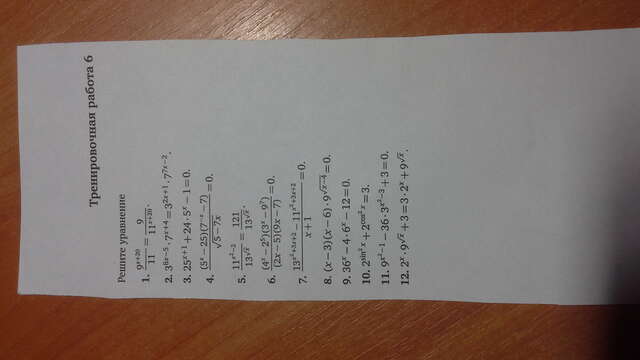 Тренировочная работа 6
Решите уравнение
1. \frac{9^{x+20}}{11} = \frac{9}{11^{x+20}}.
2. 3^{8x-5} · 7^{x+4} = 3^{2x+1} · 7^{7x-2}.
3. 25^{x+1} + 24 · 5^x − 1 = 0.
4. \frac{(5^x − 25)(7^{-x} − 7)}{\sqrt{5 − 7x}} = 0.
5. \frac{11^{x^2-2}}{13^{\sqrt{x}}} = \frac{121}{13^{\sqrt{x}}}.
6. \frac{(4^x − 2^5)(3^x − 9^7)}{(2x − 5)(9x − 7)} = 0.
7. \frac{13^{x^2+3x+2} − 11^{x^2+3x+2}}{x + 1} = 0.
8. (x − 3)(x − 6) · 9^{\sqrt{x-4}} = 0.
9. 36^x − 4 · 6^x − 12 = 0.
10. 2^{\sin^2 x} + 2^{\cos^2 x} = 3.
11. 9^{x^2-1} − 36 · 3^{x^2-3} + 3 = 0.
12. 2^x · 9^{\sqrt{x}} + 3 = 3 · 2^x + 9^{\sqrt{x}}.